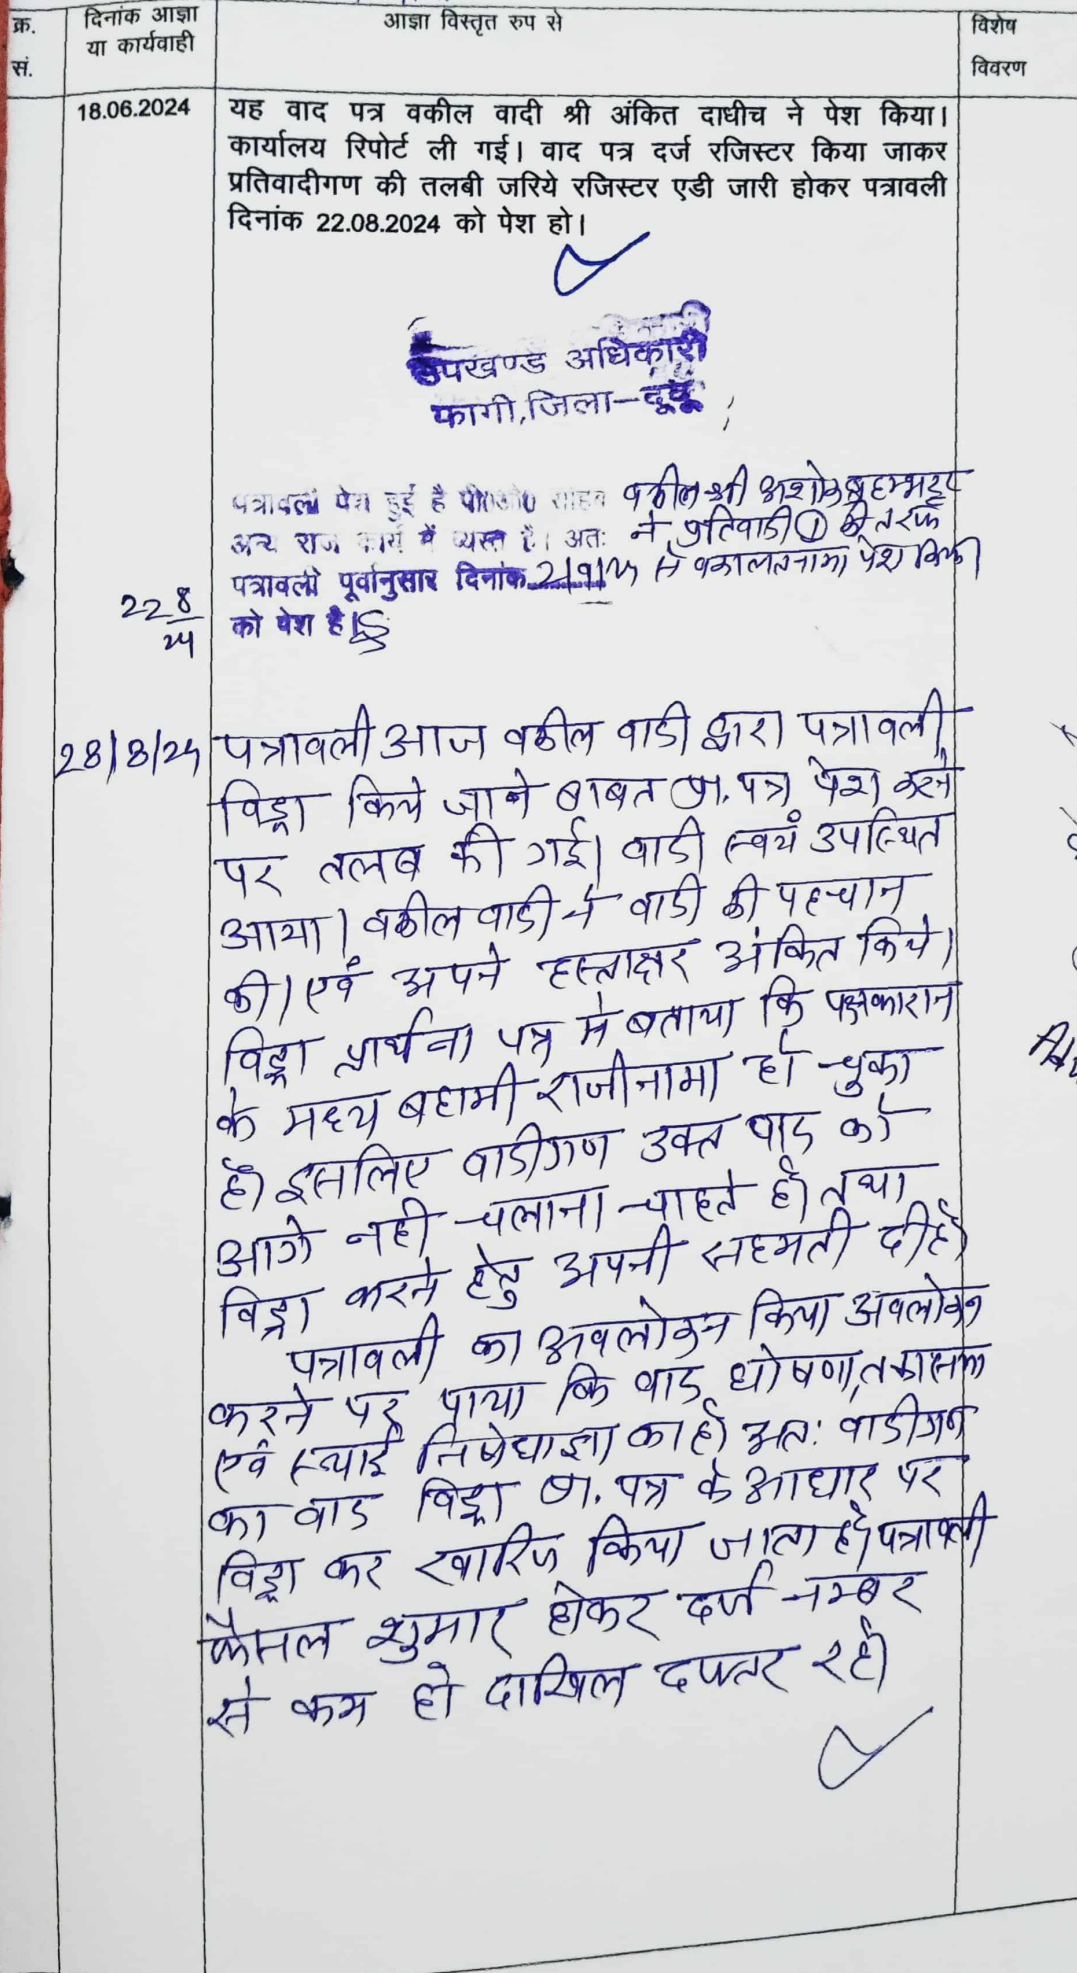 क्र. सं.
दिनांक आज्ञा या कार्यवाही
आज्ञा विस्तृत रुप से
विशेष विवरण
18.06.2024
यह वाद पत्र वकील वादी श्री अंकित दाधीच ने पेश किया।
कार्यालय रिपोर्ट ली गई। वाद पत्र दर्ज रजिस्टर किया जाकर
प्रतिवादीगण की तलबी जरिये रजिस्टर एडी जारी होकर पत्रावली
दिनांक 22.08.2024 को पेश हो।
उपखण्ड अधिकारी
फागी, जिला-दूदू
22 8/24
पत्रावली पेश हुई है पी0ओ0 साहब वकील श्री अशोक
अन्य राज कार्य में व्यस्त है। अतः ने प्रतिवादी ① की तरफ
पत्रावली पूर्वानुसार दिनांक 2/9/24 से वकालतनामा पेश किया
को पेश है।
28/8/24
पत्रावली आज वकील वादी द्वारा पत्रावली
विड्रा किये जाने बाबत प्रा. पत्र पेश करने
पर तलब की गई। वादी स्वयं उपस्थित
आया। वकील वादी ने वादी की पहचान
की। एवं अपने हस्ताक्षर अंकित किये।
विड्रा प्रार्थना पत्र में बताया कि पक्षकारान
के मध्य बहामी राजीनामा हो चुका
है। इसलिए वादीगण उक्त वाद को
आगे नही चलाना चाहते है। तथा
विड्रा करने हेतु अपनी सहमती दी है।
पत्रावली का अवलोकन किया अवलोकन
करने पर पाया कि वाद घोषणा, तकासमा
एवं स्थाई निषेधाज्ञा का है। अतः वादीगण
का वाद विड्रा प्रा. पत्र के आधार पर
विड्रा कर खारिज किया जाता है। पत्रावली
फैसल शुमार होकर दर्ज नम्बर
से कम हो दाखिल दफ्तर रहे।